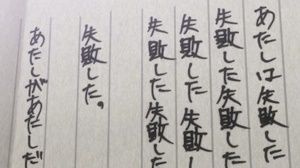 あたしは失敗した
失敗した失敗した
失敗した失敗
失敗した失敗した
失敗した。
あたしがあたしだ